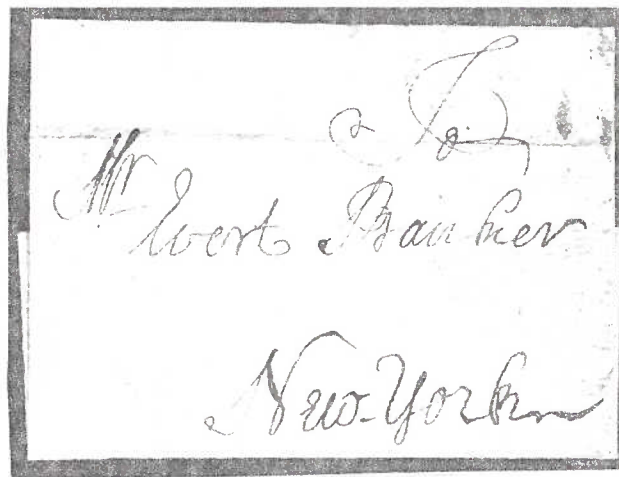 To
Mr
Evert Bancker
New-York